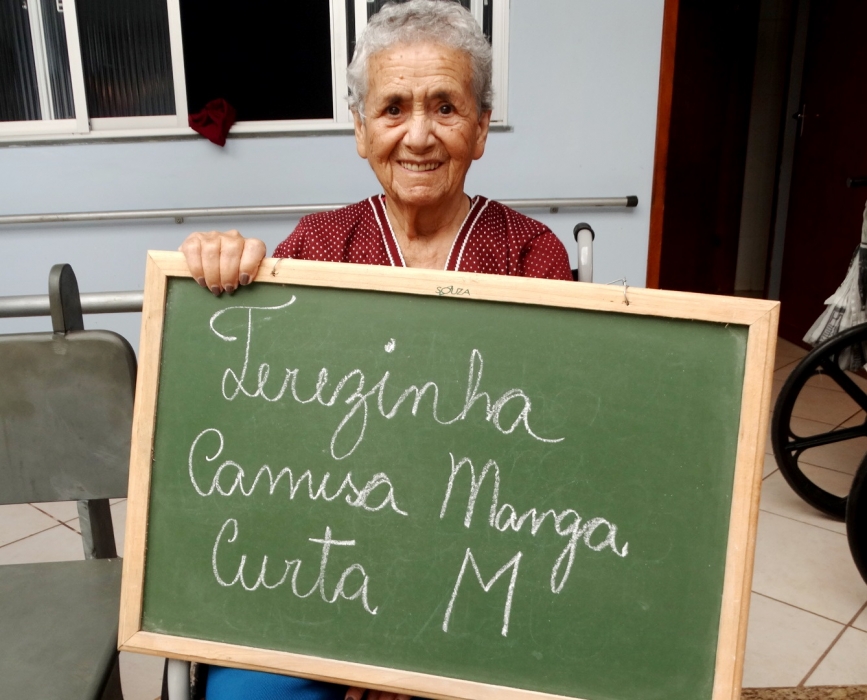 SOUZA
Terezinha
Camisa Manga
Curta M